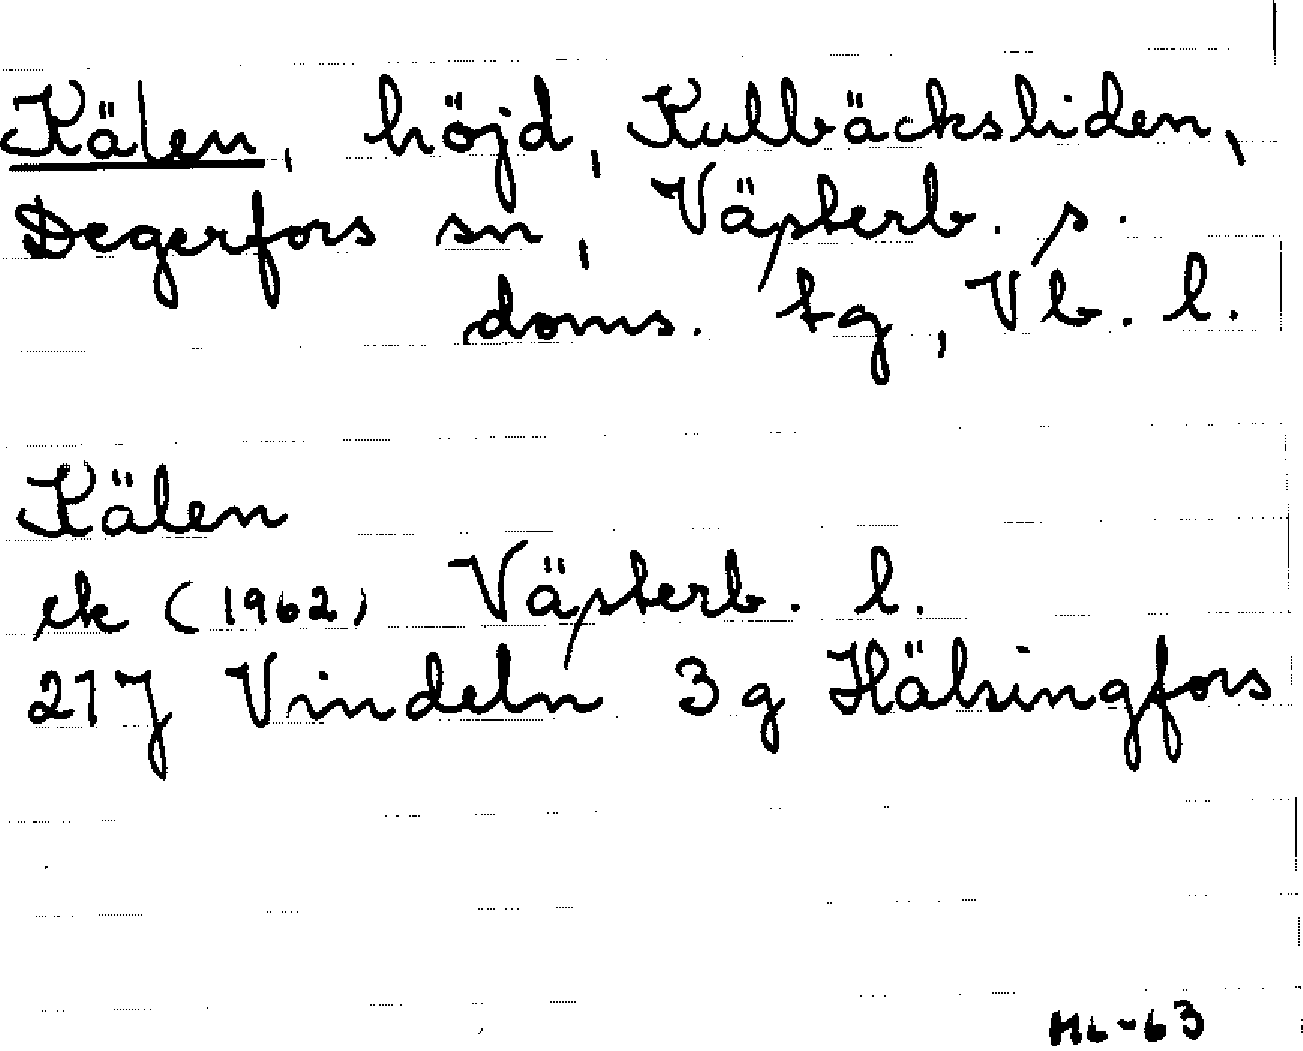 Kälen, höjd, Kulbäcksliden,
Degerfors sn, Västerb. s.
doms. tg, Vb. l.
Kälen
ek (1962) Västerb. l.
21J Vindeln 3g Hälsingfors
ML-63